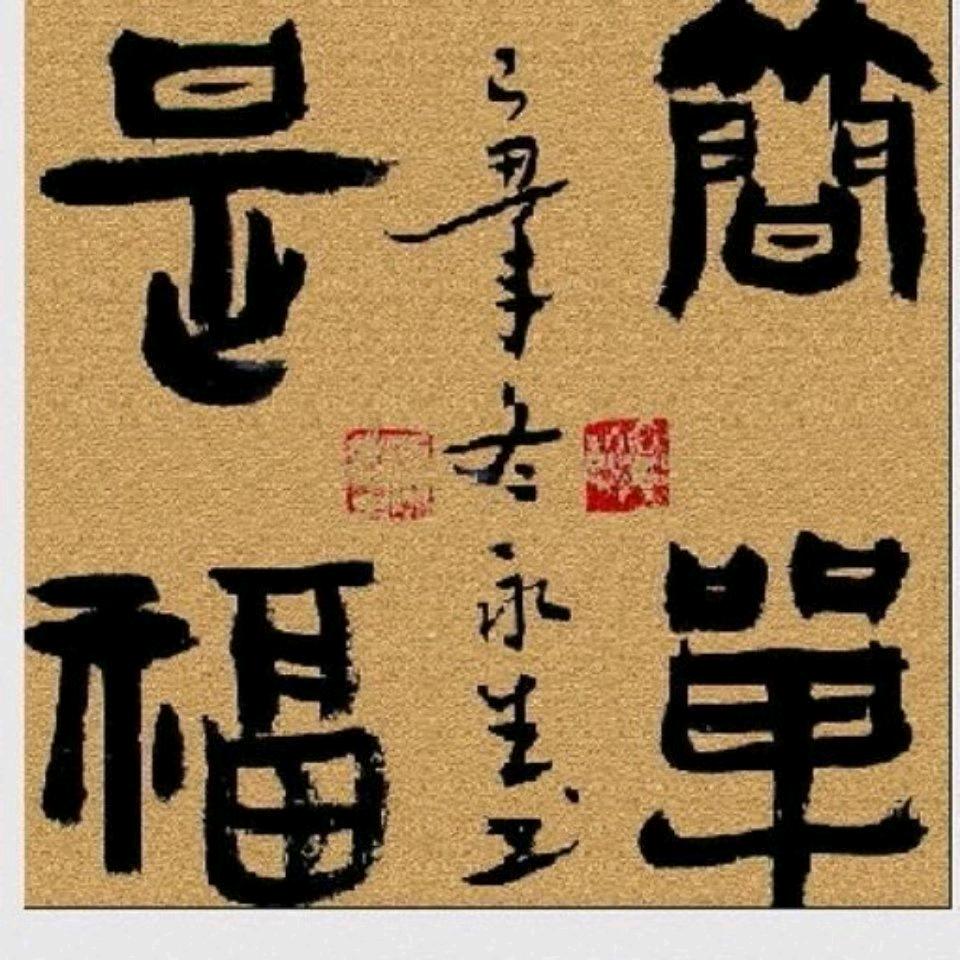 簡單
是福
己丑年冬永生書